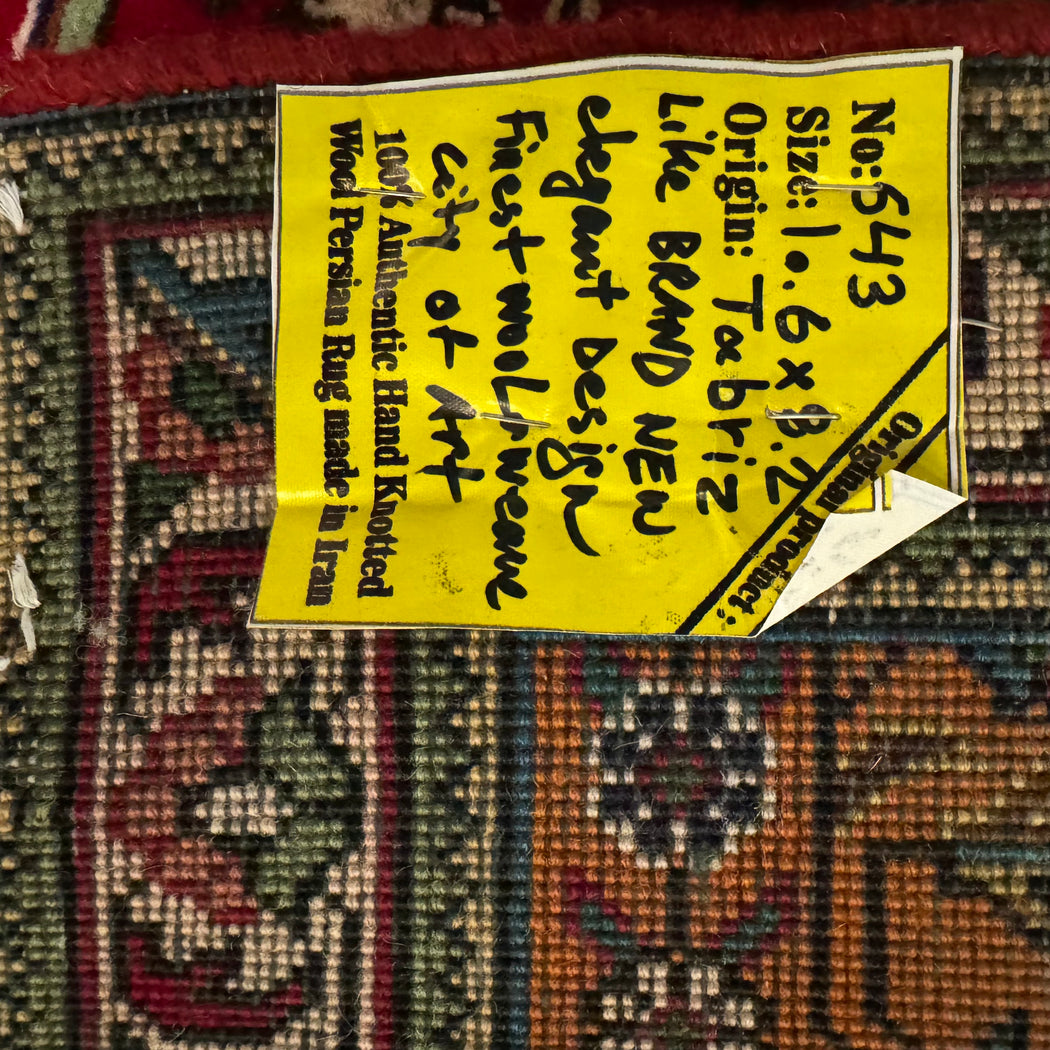 No: 543
Size: 10.6 x 8.2
Origin: Tabriz
Like BRAND NEW
elegant Design
Finest wool-weave
City of Art
100% Authentic Hand Knotted
Wool Persian Rug made in Iran
Original product.